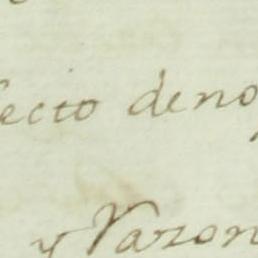 fecto deno
y Varon